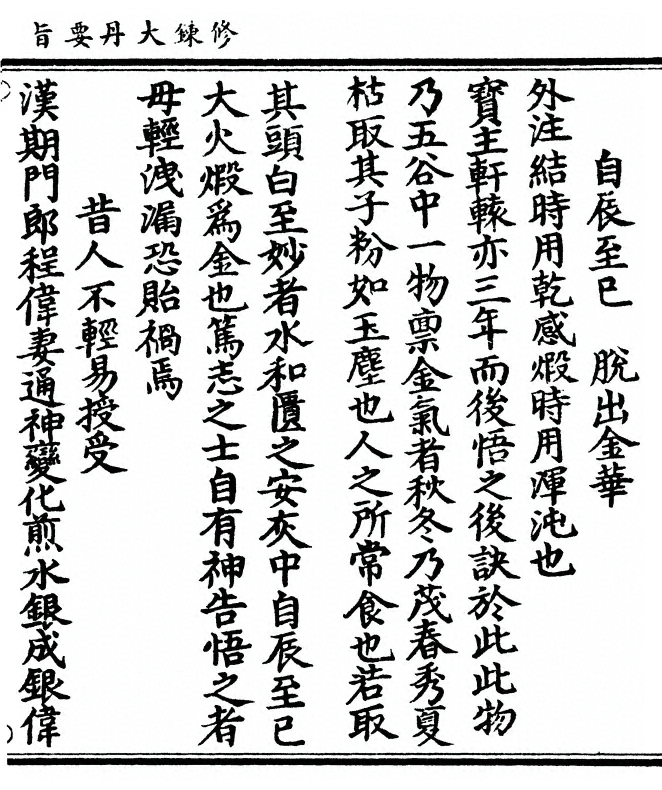 修鍊大丹要旨
自辰至巳　脫出金華
外注結時用乾感煅時用渾沌也
寶主軒轅亦三年而後悟之後訣於此此物
乃五谷中一物禀金氣者秋冬乃茂春秀夏
枯取其子粉如玉塵也人之所常食也若取
其頭白至妙者水和匱之安灰中自辰至巳
大火煅爲金也篤志之士自有神告悟之者
毋輕洩漏恐貽禍焉
昔人不輕易授受
漢期門郎程偉妻通神變化煎水銀成銀偉